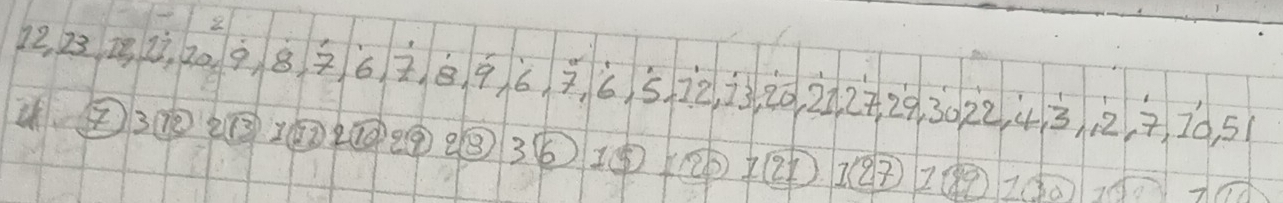 12, 13, 12, 11, 10, 9, 8, 7, 6, 7, 8, 9, 6, 7, 6, 5, 12, 13, 20, 21, 27, 29, 30, 22, 4, 3, 2, 7, 10, 51
4 7 3 12 2 13 1 11 2 10 2 9 2 8 3 6 1 5 1 20 1 21 1 27 1 29 1 30 1 1